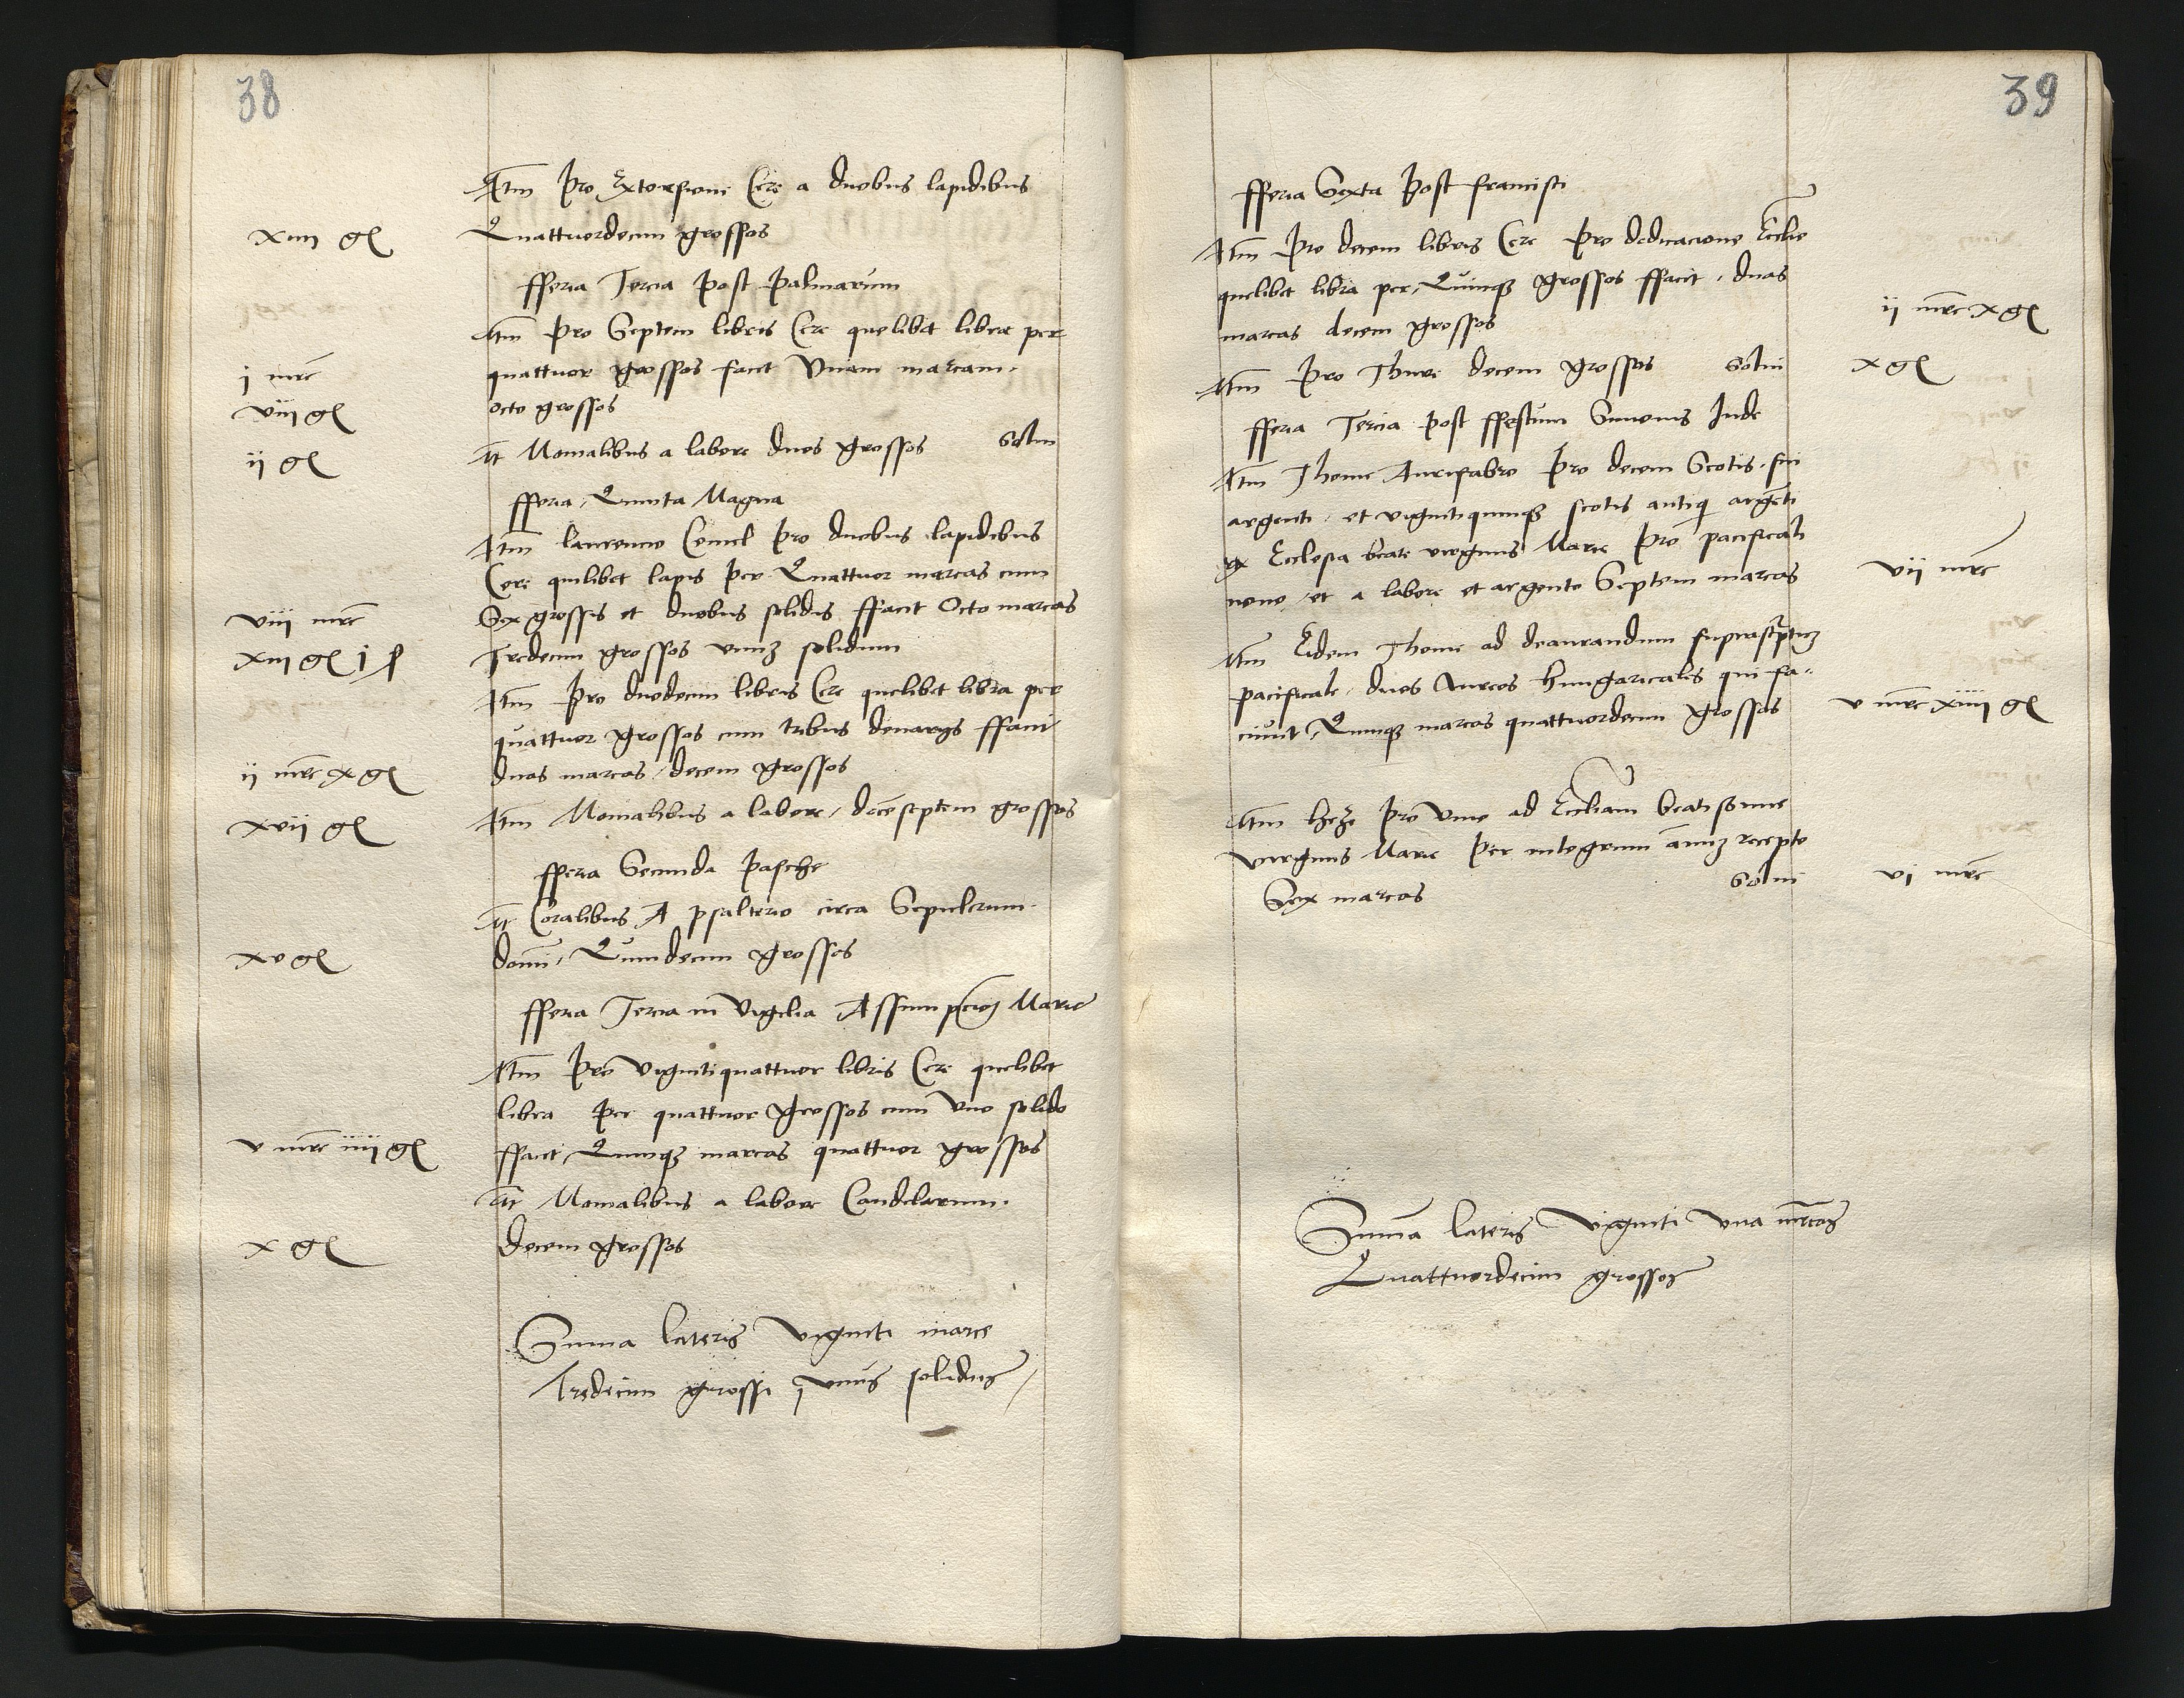 38
Itm pro Extorsione Cere a duobus lapidibus
xiiii gl Quattuordecim grossos
fferia Tercia post Palmarum
Itm pro Septem libris Cere quelibet libra per
i mrc quattuor grossos facit Unam marcam
viii gl octo grossos
ii gl It Monialibus a labore duos grossos Solui
fferia Quinta Magna
Itm laurencio pro duobus lapidibus
Cere quilibet lapis per Quattuor marcas cum
viii mrc Sex grossis et duobus solidis ffacit Octo marcas
xiii gl i ß Tredecim grossos unuz solidum
Itm pro duodecim libris Cere quelibet libra per
quattuor grossos cum tribus denarys ffacit
ii mrc x gl duas marcas decem grossos
xvii gl Itm Monialibus a labore decemseptem grossos
fferia Secunda pasche
It Coralibus A psalterio circa Sepulcrum
xv gl domini Quindecim grossos
fferia Tercia in Vigilia Assumpciois Marie
Itm pro Vigintiquattuor libris Cere quelibet
libra per quattuor grossos cum Uno solido
v mrc iiii gl ffacit Quinq3 marcas quattuor grossos
It Monialibus a labore Candelarum
x gl Decem grossos
Suma lateris Viginti marce
Tredecim grossi unus solidus
39
fferia Sexta post francisci
Itm pro decem libris Cere pro dedicacione Ecclie
quelibet libra per Quinq3 grossos ffacit duas
marcas decem grossos ii mrc x gl
Itm pro Thure decem grossos Solui x gl
fferia Tercia post ffestum Simonis Jude
Itm Thome Aurifabro pro decem Scotis fini
argenti et vigintiquinq3 scotis antiqi argeti
ex Ecclesia beate virginis Marie pro pacificali
nouo et a labore et argento Septem marcas vii mrc
Itm Eidem Thome ad deaurandum suprascriptuz
pacificale duos Aureos hungaricales qui fa-
ciunt Quinq3 marcas quattuordecim grossos v mrc xiiii gl
Itm pro Vino ad Eccliam beatissime
virginis Marie per integrum annuz recepto
Sex marcas Solui vi mrc
Suma lateris Viginti una mrcas
Quattuordecim grossos